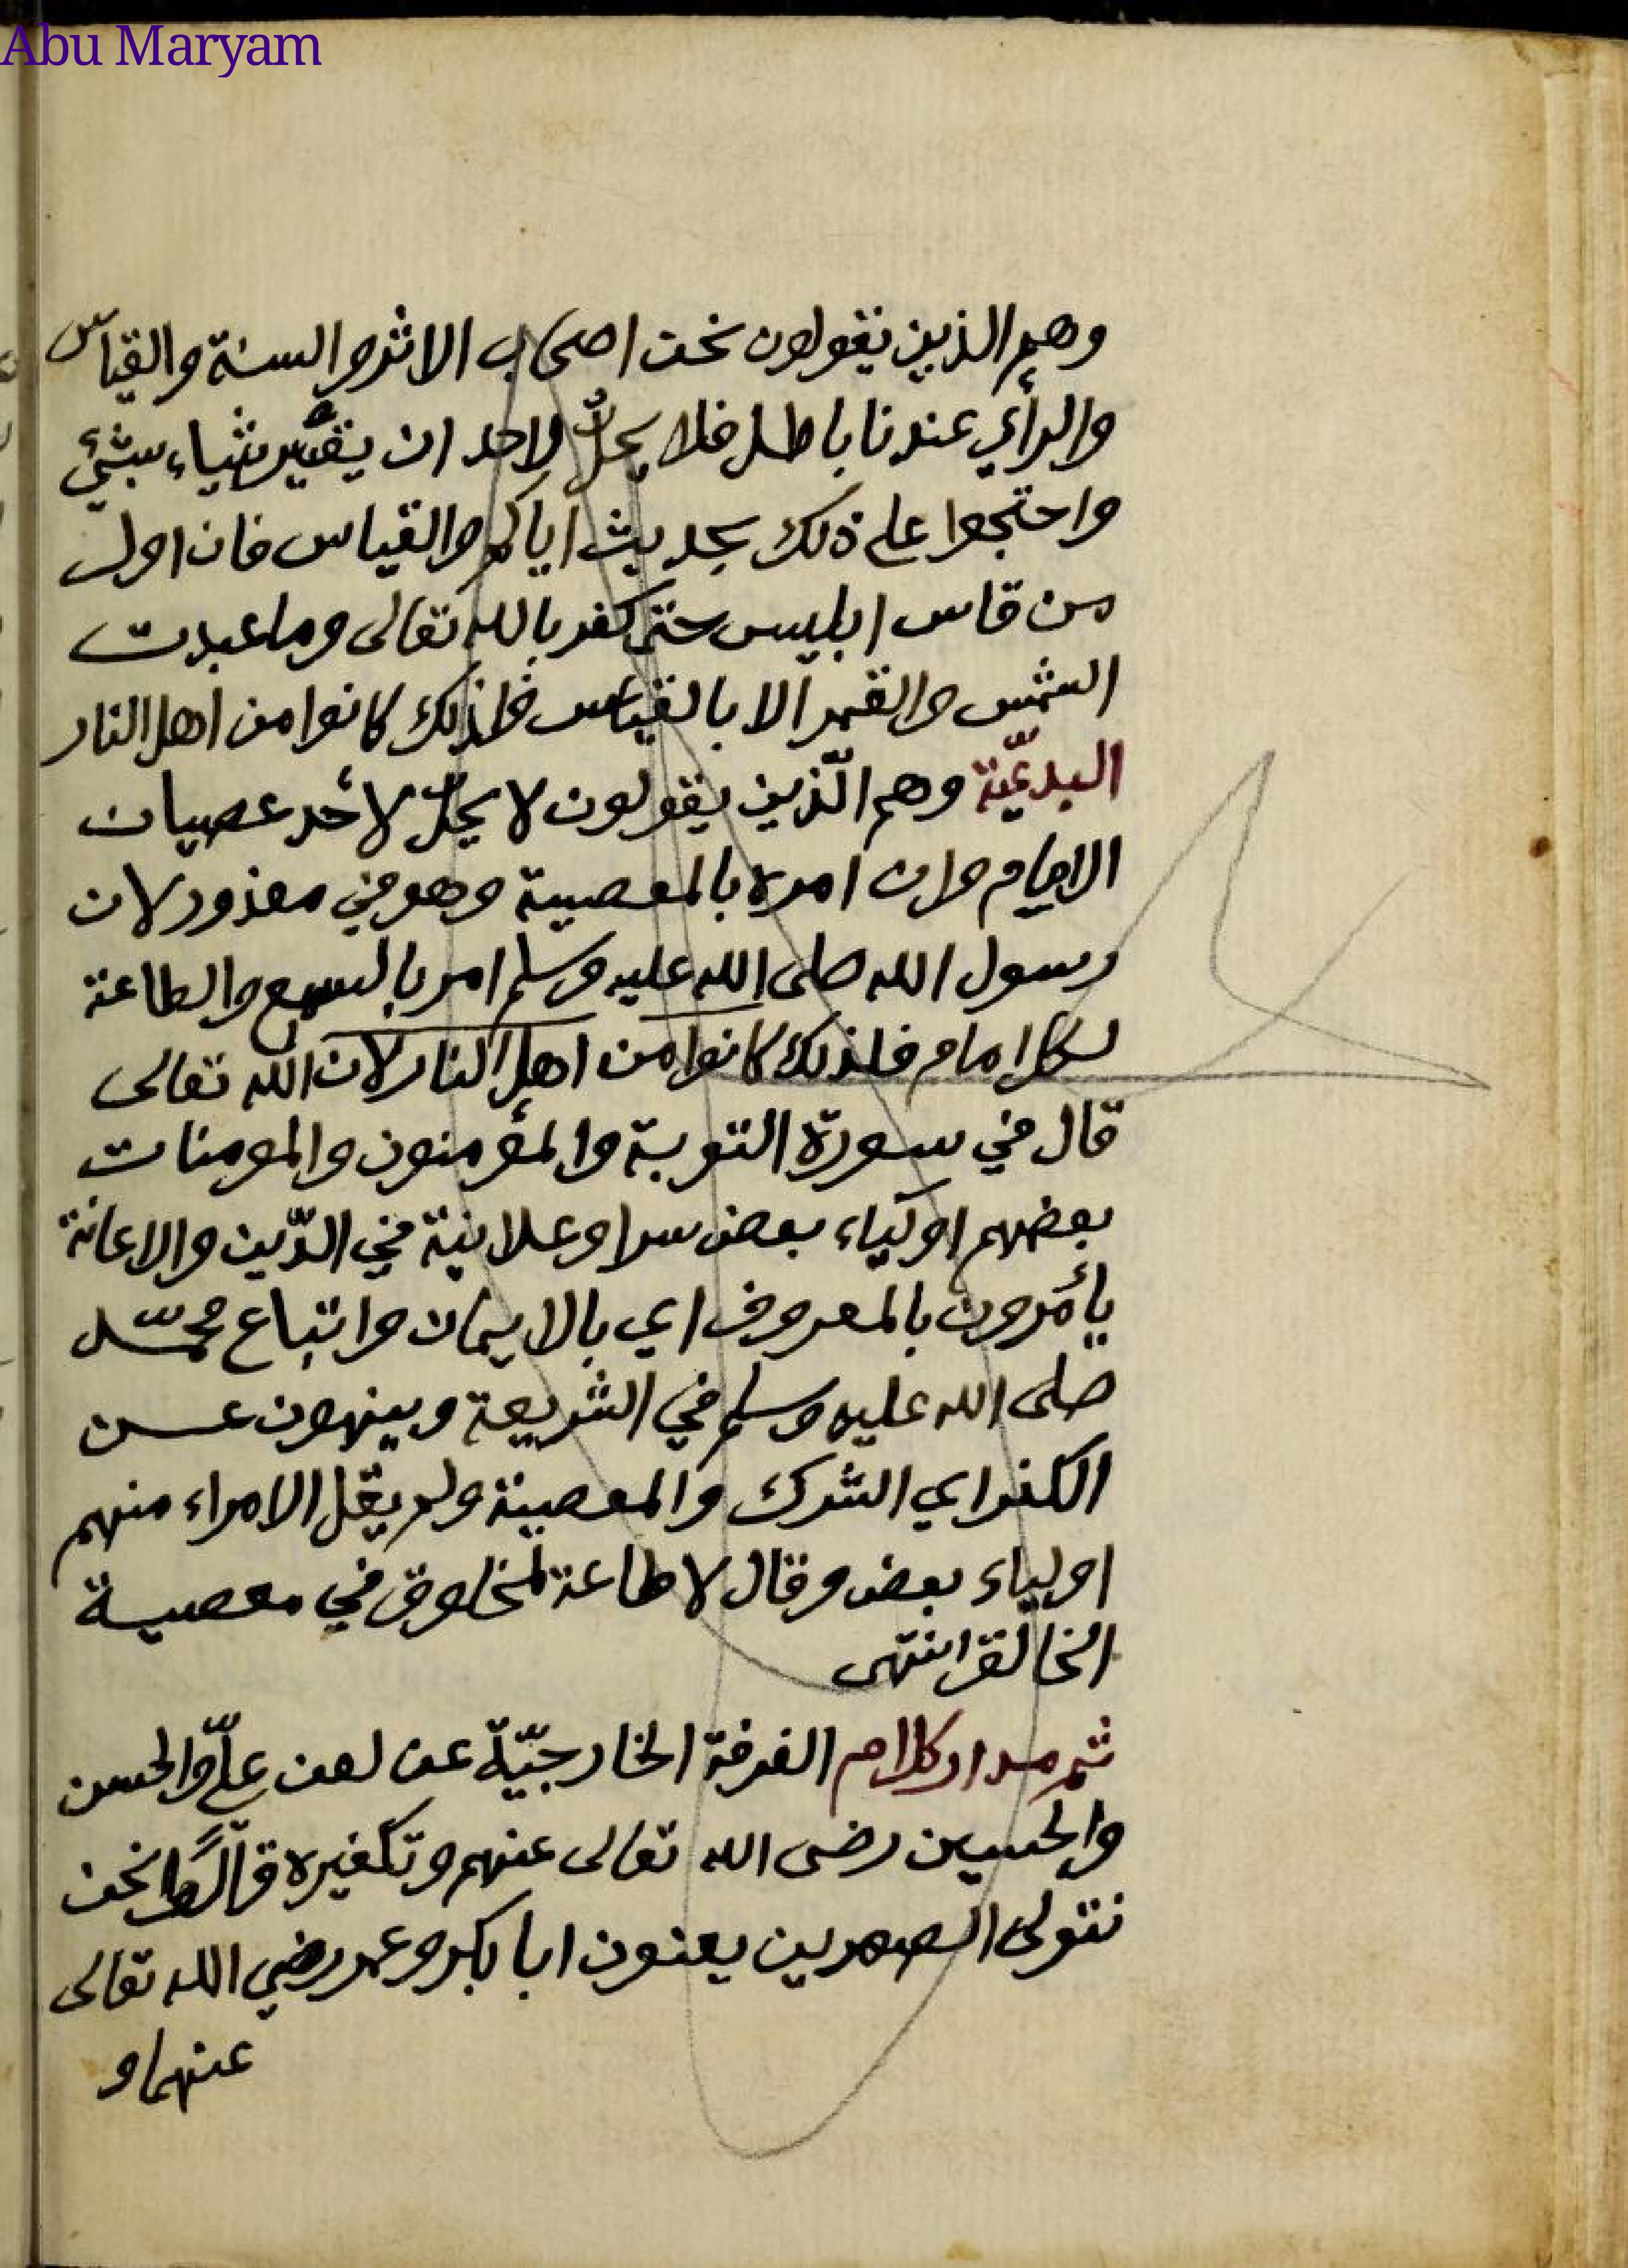 Abu Maryam
وهم الذين يقولون نحن اصحاب الاثر والسنة والقياس
والرأي عندنا باطل فلا يحلّ لاحد ان يقيس شياء بشئ
واحتجوا على ذلك بحديث اياكم والقياس فان اول
من قاس ابليس حتى كفر بالله تعالى وما عبدت
الشمس والقمر الا بالقياس فلذلك كانوا من اهل النار
البدعيّة وهم الّذين يقولون لا يحلّ لأحد عصيان
الامام وان امره بالمعصية وهو في معذور لان
رسول الله صلى الله عليه وسلم امر بالسمع والطاعة
لكل امام فلذلك كانوا من اهل النار لان الله تعالى
قال في سورة التوبة والمؤمنون والمومنات
بعضهم اولياء بعض سرا وعلانية في الدّين والاعانة
يأمرون بالمعروف اي بالايمان واتباع محمّد
صلى الله عليه وسلم في الشريعة وينهون عن
الكفر اي الشرك والمعصية ولم يقل الامراء منهم
اولياء بعض وقال لا طاعة لمخلوق في معصية
الخالق انتهى
ثم مدار كلام الفرقة الخارجيّة عن لعن عليّ والحسن
والحسين رضى الله تعالى عنهم وتكفيره نحن
نتولى الصهرين يعنون ابا بكر وعمر رضي الله تعالى
عنهما و